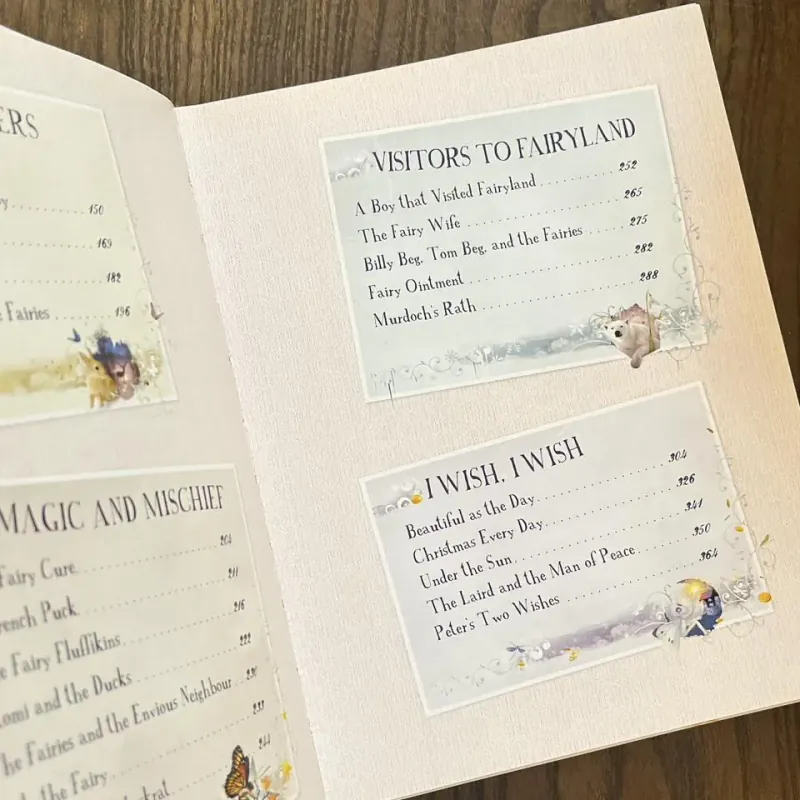 ERS
150
169
182
Fairies 196
MAGIC AND MISCHIEF
Fairy Cure 204
French Puck 211
Fairy Fluffikins 216
and the Ducks 222
The Fairies and the Envious Neighbour 230
the Fairy 233
244
VISITORS TO FAIRYLAND
A Boy that Visited Fairyland 252
The Fairy Wife 265
Billy Beg, Tom Beg, and the Fairies 275
Fairy Ointment 282
Murdoch's Rath 288
I WISH, I WISH
Beautiful as the Day 304
Christmas Every Day 326
Under the Sun 341
The Laird and the Man of Peace 350
Peter's Two Wishes 364